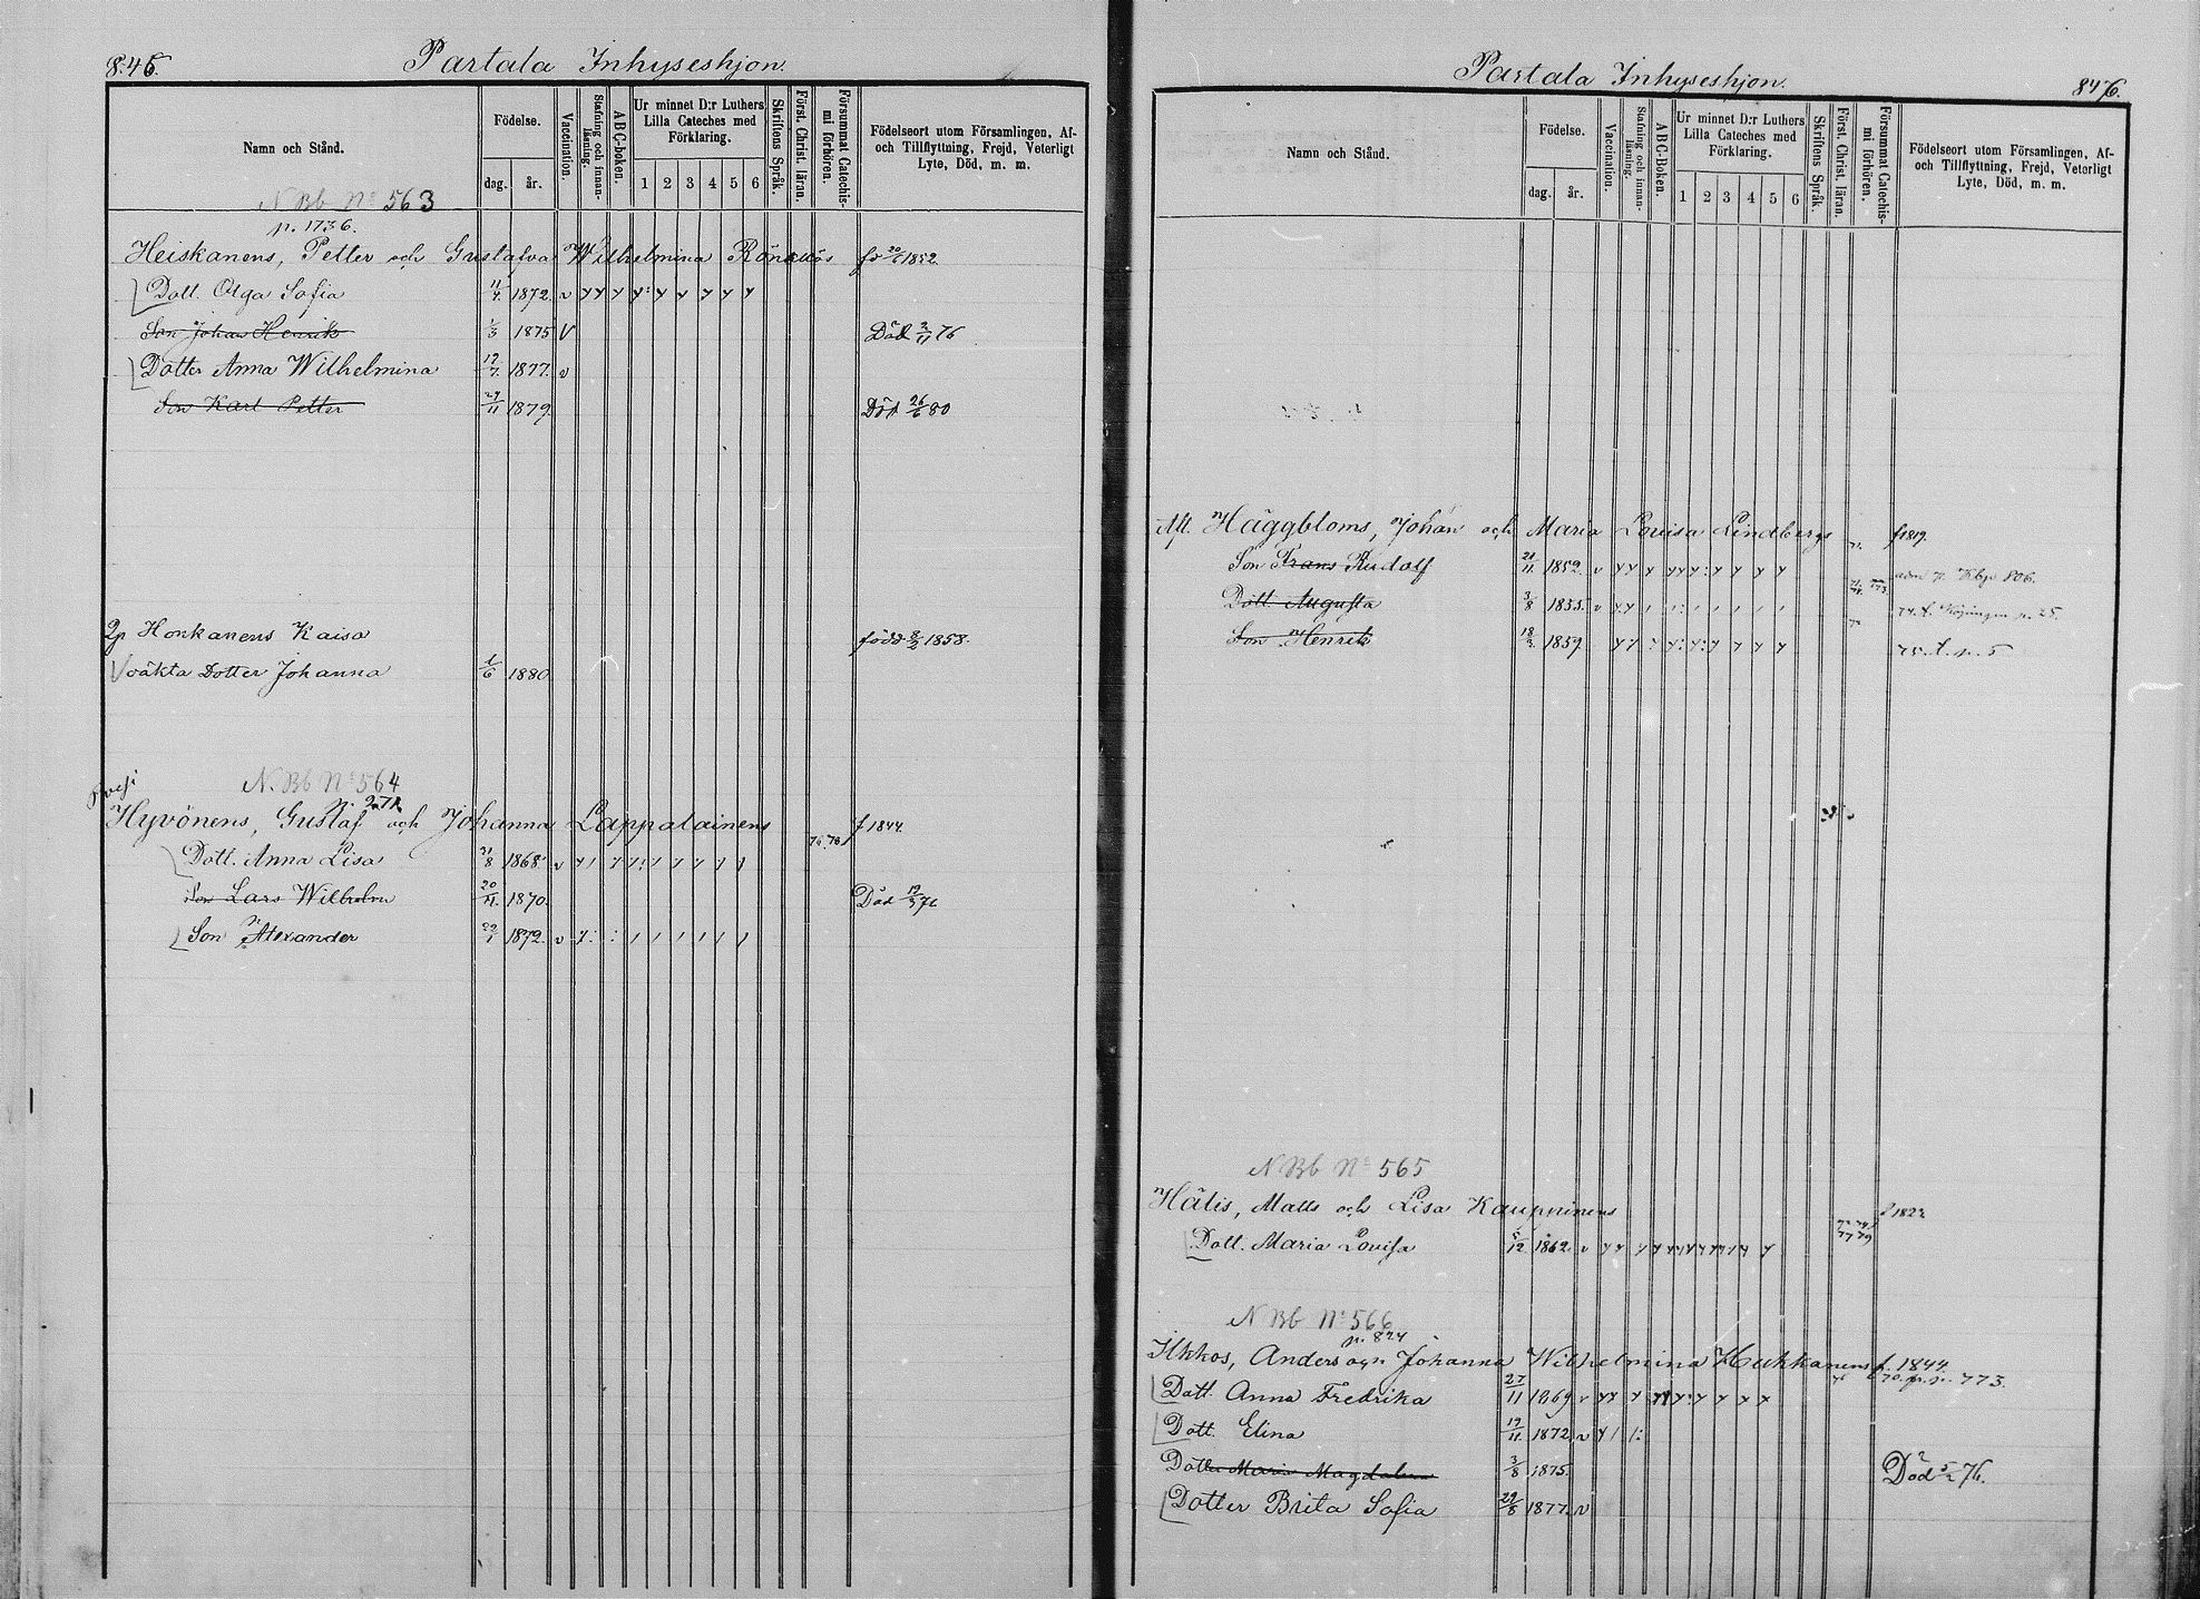 845.
Partala Inhyseshjon.
Namn och Stånd.
Födelse.
dag.
år.
Vaccination.
Stafning och innanläsning.
ABC-boken.
Ur minnet D:r Luthers Lilla Cateches med Förklaring.
1 2 3 4 5 6
Skriftens Språk.
Först. Christ. läran.
Försummat Catechismi förhören.
Födelseort utom Församlingen, Af- och Tillflyttning, Frejd, Veterligt Lyte, Död, m. m.
N Bb No 563
p. 1736.
Heiskanens, Petter och Gustafva Wilhelmina 20/6 1852.
Dott. Olga Sofia 11/4. 1872. v
Son Johan Henrik 1/3 1875 V Död 2/11 76
Dotter Anna Wilhelmina 19/7. 1877. v
Son Karl Petter 29/11 1879. Död 26/6 80
Honkanens Kaisa född 8/2 1858.
oäkta Dotter Johanna 1/6 1880
N. Bb No 564
Hyvönens, Gustaf och Johanna Lappalainens f 1844.
Dott. Anna Lisa 31/8 1868. v
Son Lars Wilhelm 20/11. 1870. Död 19/3 76
Son Alexander 29/1 1872. v
Partala Inhyseshjon.
876.
Namn och Stånd.
Födelse.
dag.
år.
Vaccination.
Stafning och innanläsning.
ABC-Boken.
Ur minnet D:r Luthers Lilla Cateches med Förklaring.
1 2 3 4 5 6
Skriftens Språk.
Först. Christ. läran.
Försummat Catechismi förhören.
Födelseort utom Församlingen, Af- och Tillflyttning, Frejd, Veterligt Lyte, Död, m. m.
Afl. Häggbloms, Johan och Maria Lovisa Lindbergs f 1819.
Son Frans Rudolf 21/11. 1852. v 806.
Dott. Augusta 3/8 1855. v 74. t. p. 25.
Son Henrik 18/3. 1859. 75. t. p. 5
N Bb No 565
Hälis, Matts och Lisa Kauppinens
Dott. Maria Lovisa 5/12 1862. v
N Bb No 566
p. 824
Ilkkos, Anders och Johanna Wilhelmina Hukkanens f. 1844.
p. 773.
Dott. Anna Fredrika 27/11 1869 v
Dott. Elina 19/11. 1872. v
Dotter Maria Magdalena 3/8 1875. Död 5/2 76.
Dotter Brita Sofia 29/8 1877. v